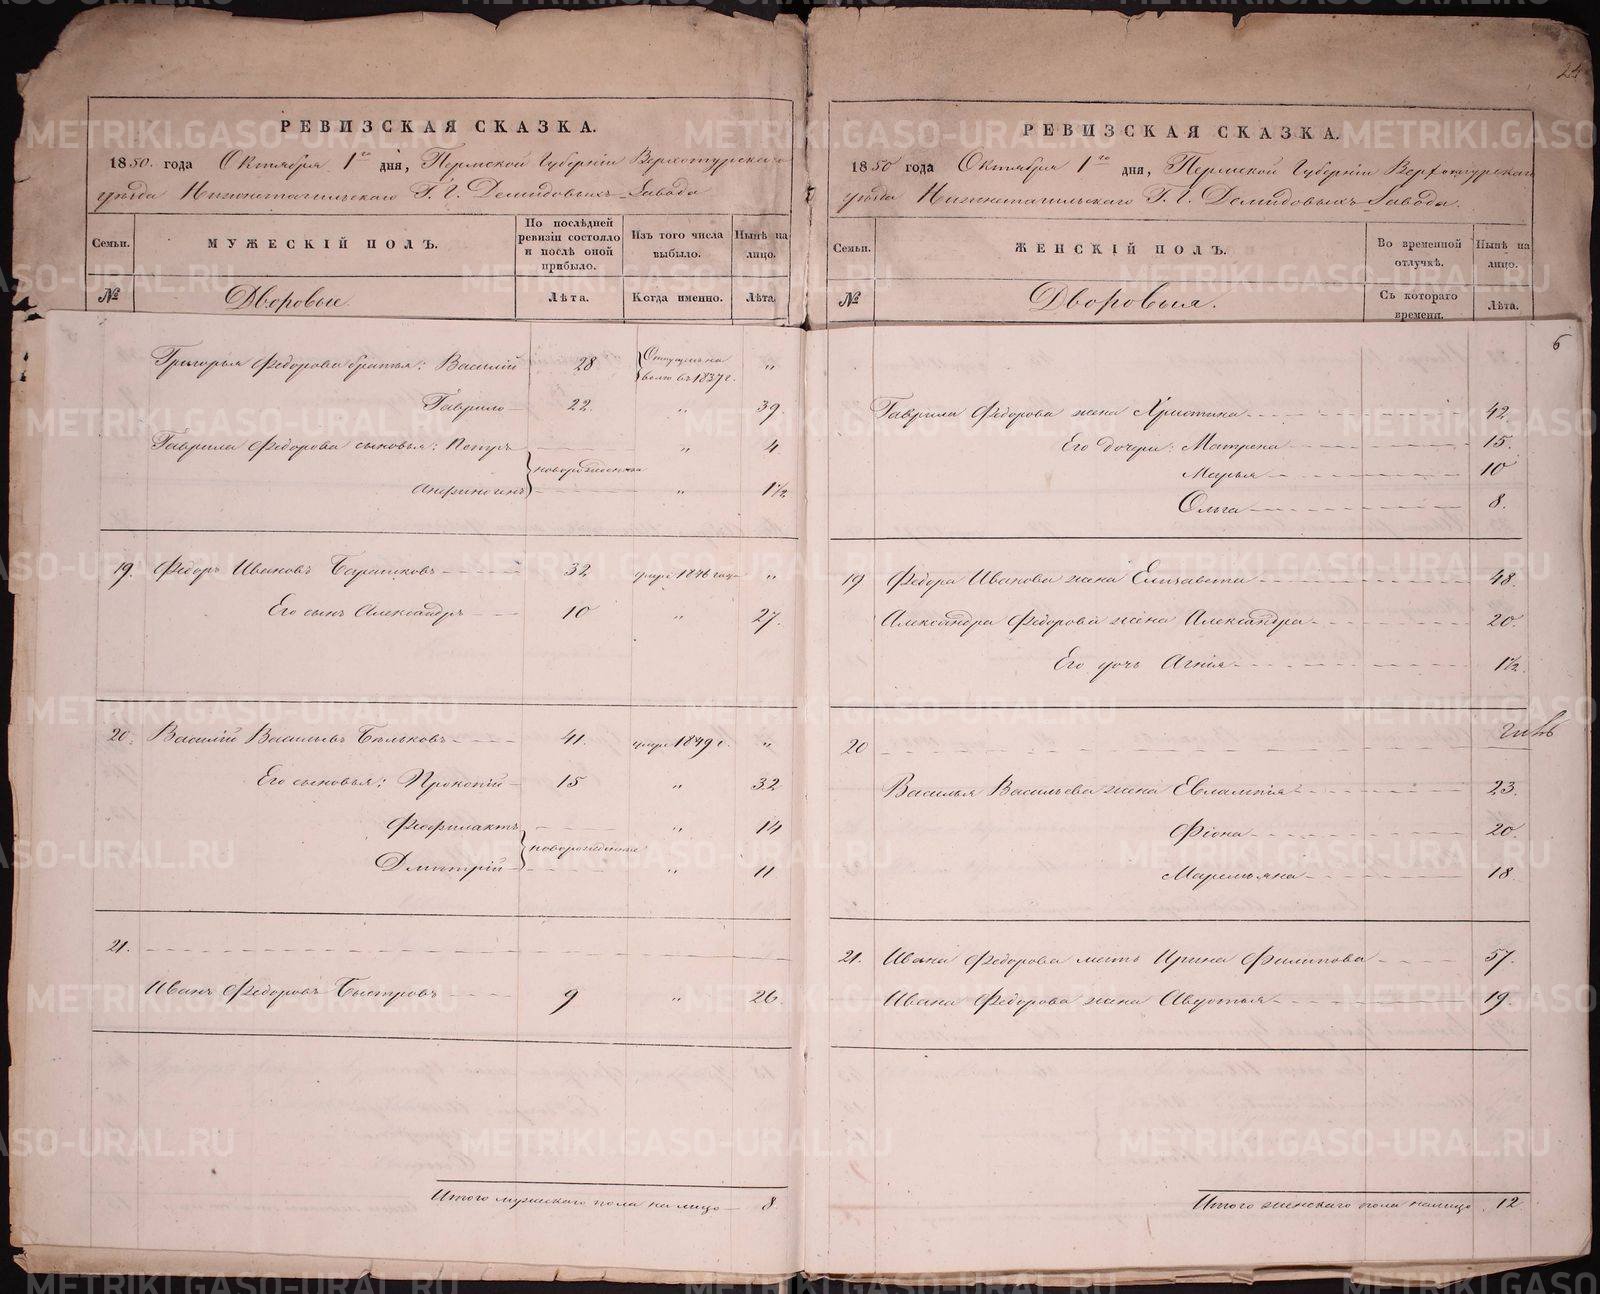 24
РЕВИЗСКАЯ СКАЗКА.
1850. года Октября 1го дня, Пермской Губерніи Верхотурскаго
уѣзда Нижнетагильскаго Г. Г. Демидовыхъ Завода
Семьи. МУЖЕСКІЙ ПОЛЪ. По послѣдней ревизіи состояло и послѣ оной прибыло. Изъ того числа выбыло. Нынѣ на лицо.
№ Дворовые. Лѣта. Когда именно. Лѣта
Григорья Федорова братья: Василій 28 Отпущенъ на волю въ 1837 г. "
Гаврило 22. " 39
Гаврила Федорова сыновья: Петръ " 4
новорожденные
Анфиногенъ " 1½
19. Федоръ Ивановъ Барашковъ 32 умре 1846 года "
Его сынъ Александръ 10 " 27.
20. Василій Васильевъ Бѣльковъ 41. умре 1849 г. "
Его сыновья: Прокопій 15 " 32
Феофилактъ " 14
новорожденные
Дмитрій " 11
21.
Иванъ Федоровъ Быстровъ 9 " 26.
Итого мужескаго пола на лицо 8
РЕВИЗСКАЯ СКАЗКА.
1850 года Октября 1го дня, Пермской Губерніи Верхотурскаго
уѣзда Нижнетагильскаго Г. Г. Демидовыхъ Завода.
Семьи. ЖЕНСКІЙ ПОЛЪ. Во временной отлучкѣ. Нынѣ на лицо.
№ Дворовыя. Съ котораго времени. Лѣта.
6
Гаврила Федорова жена Христина 42.
Его дочери: Матрена 15.
Марья 10
Ольга 8.
19 Федора Иванова жена Елизавета 48.
Александра Федорова жена Александра 20.
Его дочь Агнія 1½.
20
Василья Васильева жена Евлампія 23.
Фіона 20.
Маремьяна 18.
21. Ивана Федорова мать Ирина Филипова 57.
Ивана Федорова жена Авдотья 19.
Итого женскаго пола налицо 12
METRIKI.GASO-URAL.RU